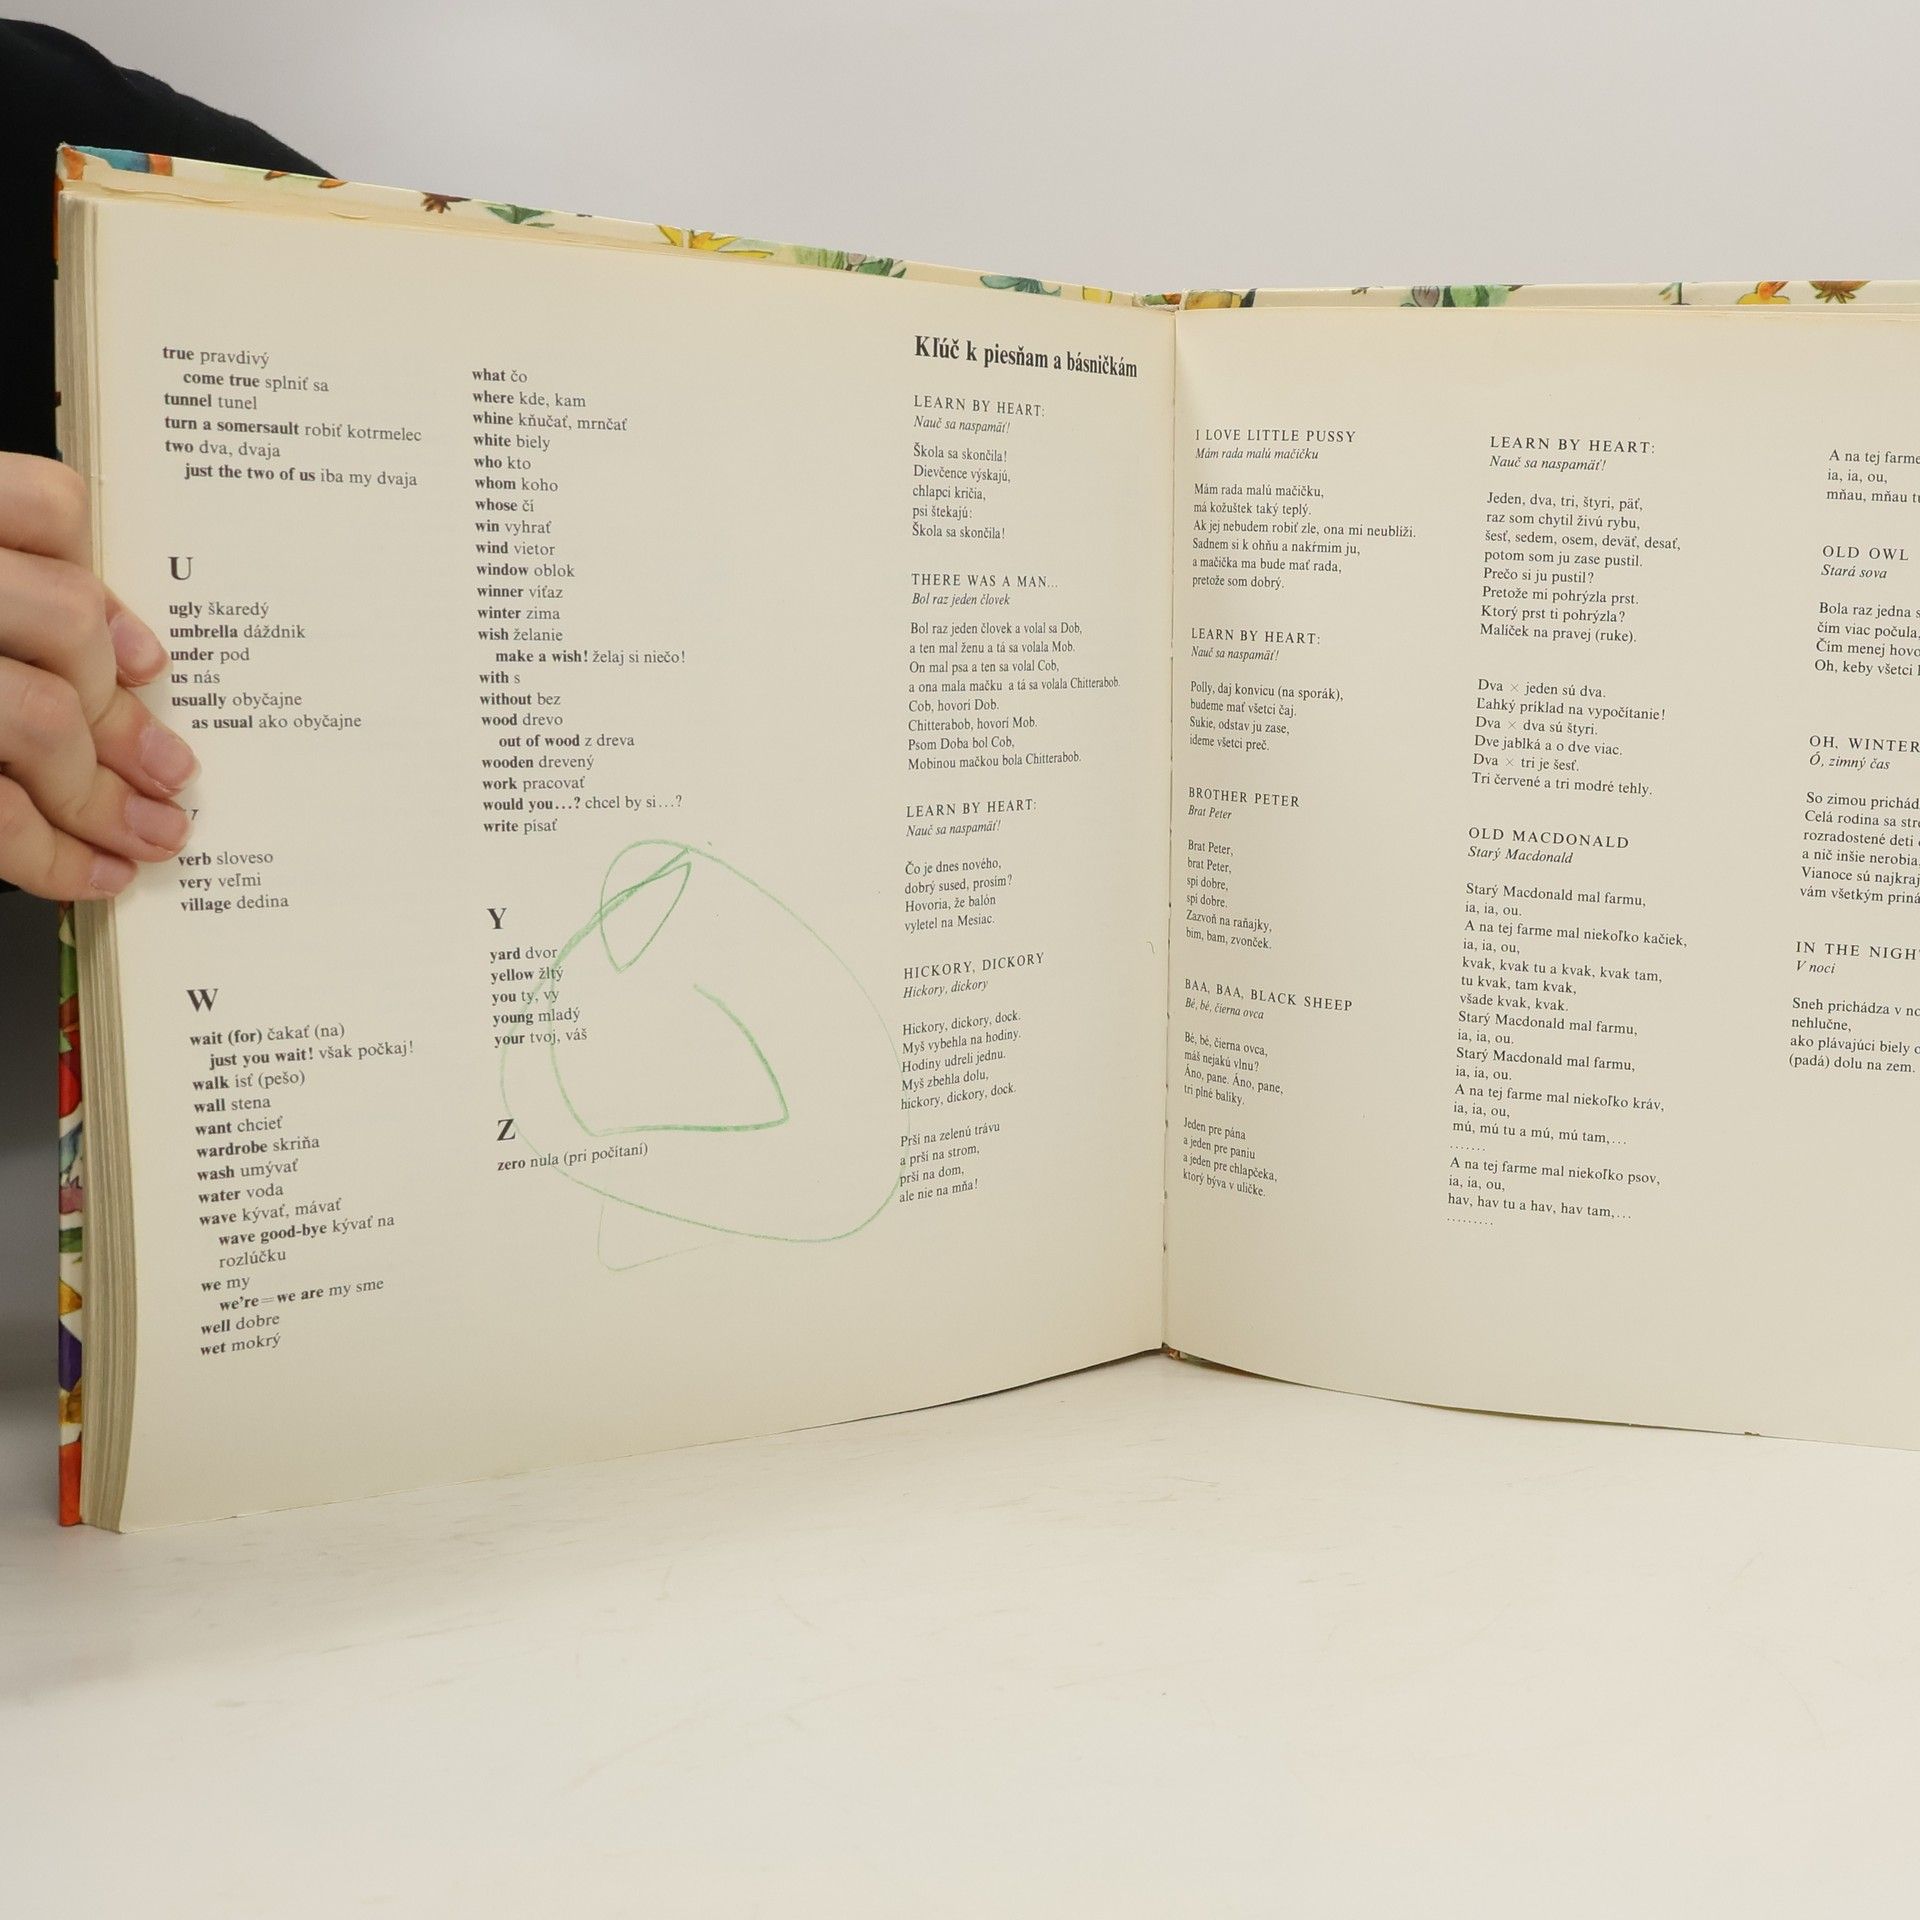 true pravdivý
come true splniť sa
tunnel tunel
turn a somersault robiť kotrmelec
two dva, dvaja
just the two of us iba my dvaja
U
ugly škaredý
umbrella dáždnik
under pod
us nás
usually obyčajne
as usual ako obyčajne
verb sloveso
very veľmi
village dedina
W
wait (for) čakať (na)
just you wait! však počkaj!
walk ísť (pešo)
wall stena
want chcieť
wardrobe skriňa
wash umývať
water voda
wave kývať, mávať
wave good-bye kývať na
rozlúčku
we my
we're=we are my sme
well dobre
wet mokrý
what čo
where kde, kam
whine kňučať, mrnčať
white biely
who kto
whom koho
whose čí
win vyhrať
wind vietor
window oblok
winner víťaz
winter zima
wish želanie
make a wish! želaj si niečo!
with s
without bez
wood drevo
out of wood z dreva
wooden drevený
work pracovať
would you...? chcel by si...?
write písať
Y
yard dvor
yellow žltý
you ty, vy
young mladý
your tvoj, váš
Z
zero nula (pri počítaní)
Kľúč k piesňam a básničkám
LEARN BY HEART:
Nauč sa naspamäť!
Škola sa skončila!
Dievčence výskajú,
chlapci kričia,
psi štekajú:
Škola sa skončila!
THERE WAS A MAN...
Bol raz jeden človek
Bol raz jeden človek a volal sa Dob,
a ten mal ženu a tá sa volala Mob.
On mal psa a ten sa volal Cob,
a ona mala mačku a tá sa volala Chitterabob.
Cob, hovorí Dob.
Chitterabob, hovorí Mob.
Psom Doba bol Cob,
Mobinou mačkou bola Chitterabob.
LEARN BY HEART:
Nauč sa naspamäť!
Čo je dnes nového,
dobrý sused, prosím?
Hovoria, že balón
vyletel na Mesiac.
HICKORY, DICKORY
Hickory, dickory
Hickory, dickory, dock.
Myš vybehla na hodiny.
Hodiny udreli jednu.
Myš zbehla dolu,
hickory, dickory, dock.
Prší na zelenú trávu
a prší na strom,
prší na dom,
ale nie na mňa!
I LOVE LITTLE PUSSY
Mám rada malú mačičku
Mám rada malú mačičku,
má kožuštek taký teplý.
Ak jej nebudem robiť zle, ona mi neublíži.
Sadnem si k ohňu a nakŕmim ju,
a mačička ma bude mať rada,
pretože som dobrý.
LEARN BY HEART:
Nauč sa naspamäť!
Polly, daj konvicu (na sporák),
budeme mať všetci čaj.
Sukie, odstav ju zase,
ideme všetci preč.
BROTHER PETER
Brat Peter
Brat Peter,
brat Peter,
spi dobre,
spi dobre.
Zazvoň na raňajky,
bim, bam, zvonček.
BAA, BAA, BLACK SHEEP
Bé, bé, čierna ovca
Bé, bé, čierna ovca,
máš nejakú vlnu?
Áno, pane. Áno, pane,
tri plné balíky.
Jeden pre pána
a jeden pre paniu
a jeden pre chlapčeka,
ktorý býva v uličke.
LEARN BY HEART:
Nauč sa naspamäť!
Jeden, dva, tri, štyri, päť,
raz som chytil živú rybu,
šesť, sedem, osem, deväť, desať,
potom som ju zase pustil.
Prečo si ju pustil?
Pretože mi pohrýzla prst.
Ktorý prst ti pohrýzla?
Malíček na pravej (ruke).
Dva × jeden sú dva.
Ľahký príklad na vypočítanie!
Dva × dva sú štyri.
Dve jablká a o dve viac.
Dva × tri je šesť.
Tri červené a tri modré tehly.
OLD MACDONALD
Starý Macdonald
Starý Macdonald mal farmu,
ia, ia, ou.
A na tej farme mal niekoľko kačiek,
ia, ia, ou,
kvak, kvak tu a kvak, kvak tam,
tu kvak, tam kvak,
všade kvak, kvak.
Starý Macdonald mal farmu,
ia, ia, ou.
Starý Macdonald mal farmu,
ia, ia, ou.
A na tej farme mal niekoľko kráv,
ia, ia, ou,
mú, mú tu a mú, mú tam,...
.......
A na tej farme mal niekoľko psov,
ia, ia, ou,
hav, hav tu a hav, hav tam,...
.........
A na tej farme
ia, ia, ou,
mňau, mňau
OLD OWL
Stará sova
Bola raz jedna
čím viac počula,
Čím menej
Oh, keby všetci
OH, WINTER
Ó, zimný čas
So zimou
Celá rodina sa
rozradostené deti
a nič inšie nerobia,
Vianoce sú
vám všetkým
IN THE
V noci
Sneh prichádza v
nehlučne,
ako plávajúci biely
(padá) dolu na zem.